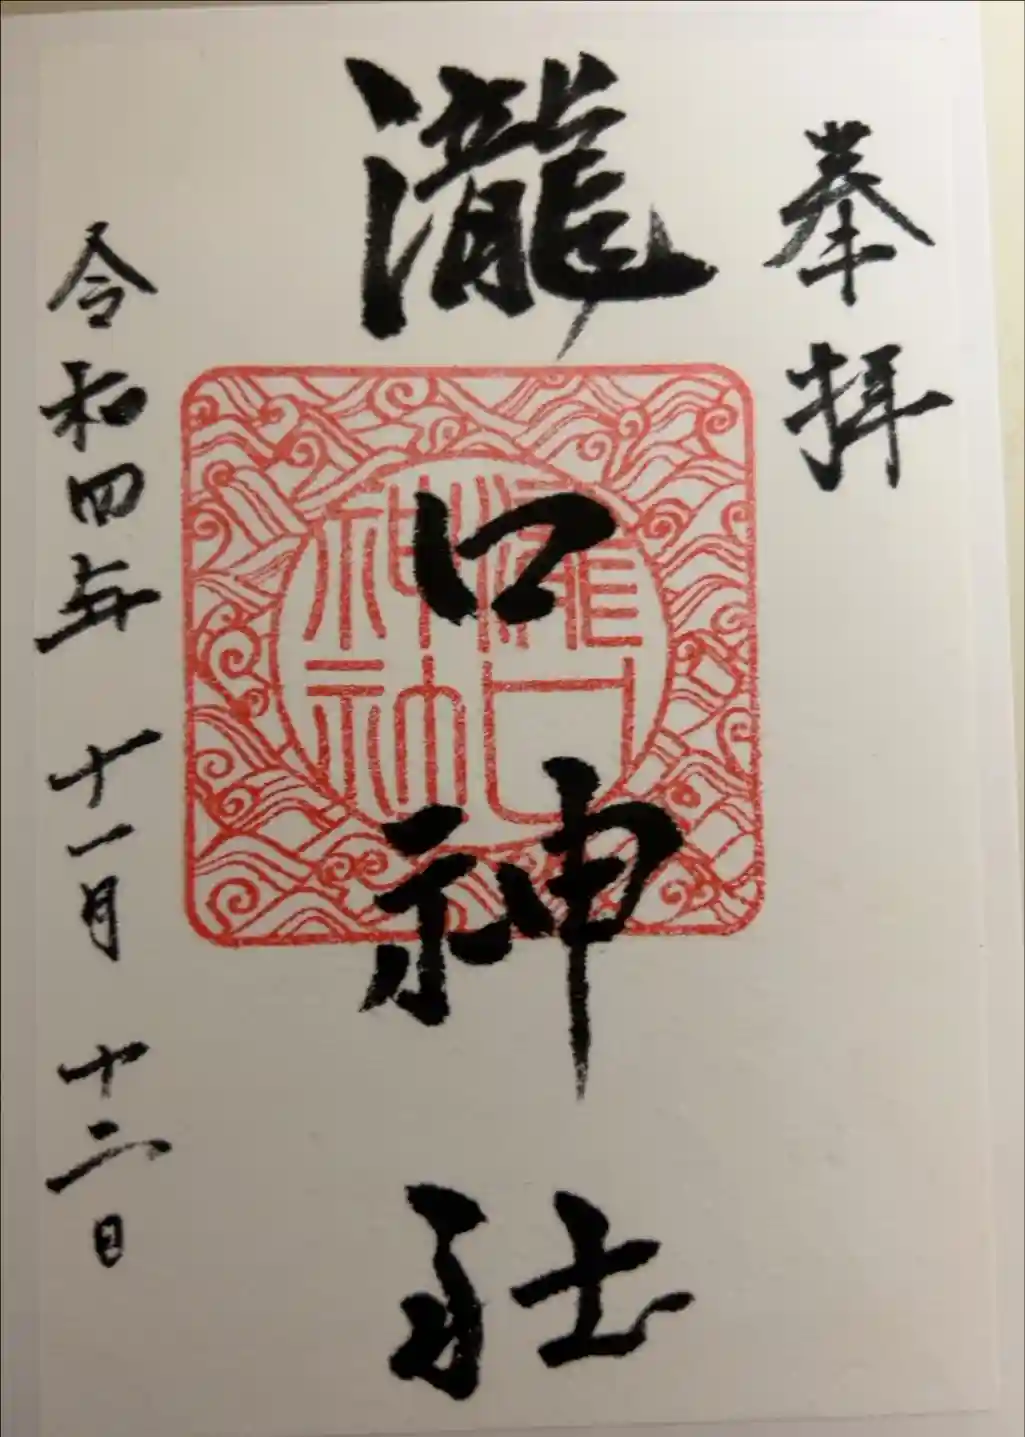 奉拝
瀧口神社
瀧口
神社
令和四年 十一月 十二日